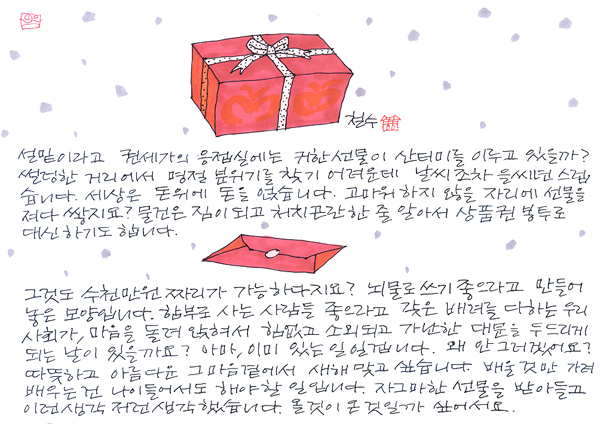 철수
설밑이라고 권세가의 응접실에는 귀한 선물이 산더미를 이루고 있을까?
썰렁한 거리에서 명절 분위기를 찾기 어려운데 날씨조차 을씨년스럽
습니다. 세상은 돈위에 돈을 얹습니다. 고마워하지 않을 자리에 선물을
져다 쌓지요? 물건은 짐이 되고 처치곤란한 줄 알아서 상품권 봉투로
대신하기도 합니다.
그것도 수천만원 짜리가 가능하다지요? 뇌물로 쓰기 좋으라고 만들어
놓은 모양입니다. 함부로 사는 사람들 좋으라고 갖은 배려를 다하는 우리
사회가, 마음을 돌려 앉혀서 힘없고 소외되고 가난한 대문을 두드리게
되는 날이 있을까요? 아마, 이미 있는 일일겁니다. 왜 안 그러겠어요?
따뜻하고 아름다운 그 마음곁에서 새해 맞고 싶습니다. 배울 것만 가려
배우는건 나이들어서도 해야할 일입니다. 자그마한 선물을 받아들고
이런생각 저런생각 했습니다. 올것이 온 것일까 싶어서요.